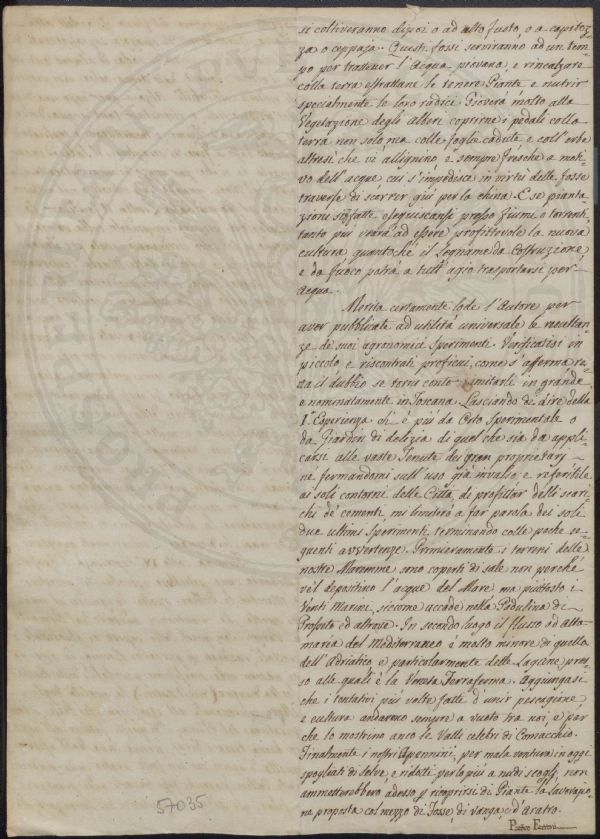 si coltiveranno dipoi o ad alto fusto, o a capitoz-
za o ceppaja. Questi fossi serviranno ad un tem-
po per trattener l'Acqua piovana, e rincalzare
colla terra estrattane le tenere Piante e nutrir
specialmente le loro radici. Gioverà molto alla
Vegetazione degli alberi coprirne i pedali colla
terra non solo ma colle foglie cadute, e coll'erbe
altresì che vi allignino e sempre fresche a moti-
vo dell'acque cui s'impedisce in virtù delle fosse
traverse di scorrer giù per la china. E se pianta-
zioni siffatte eseguiscansi presso fiumi o torrenti,
tanto più verrà ad essere profittevole la nuova
cultura quantochè il Legname da Costruzione,
e da fuoco potrà a tutt'agio trasportarsi per
acqua.
Merita certamente lode l'Autore per
aver pubblicate ad utilità universale le resultan-
ze de' suoi agronomici sperimenti. Verificatisi in
piccolo, e riscontrati proficui, come s'afferma, re-
sta il dubbio se torni conto imitarli in grande
e nominatamente in Toscana. Lasciando di dire della
I.a Esperienza ch'è più da Orto Sperimentale o
da Giardin di delizia di quel che sia da appli-
carsi alle vaste Tenute dei gran proprietarj
nè fermandomi sull'uso già invalso, e referibile
ai soli contorni delle Città, di profittar delli scari-
chi de' cementi, mi limiterò a far parola dei soli
due ultimi Sperimenti, terminando colle poche se-
guenti avvertenze. Primieramente i terreni delle
nostre Maremme sono coperti di sale non perchè
ve'l depositino l'acque del Mare, ma piuttosto i
Venti Marini, siccome accade nella Padulina di
ed altrove. In secondo luogo il flusso ad alta
marea del Mediterraneo è molto minore di quello
dell'Adriatico e particolarmente delle Lagune pres-
so alle quali è la Veneta Terraferma. Aggiungasi
che i tentativi più volte fatti d'unir pescagione
e cultura andarono sempre a vuoto tra noi, e par
che lo mostrino anco le Valli celebri di Comacchio.
Finalmente i nostri Apennini, per mala ventura in oggi
spogliati di Selve, e ridotti per lo più a nudi scogli, non
ammetterebbero adesso p ricoprirsi di Piante la lavorazio-
ne proposta col mezzo di Fosse, di vanga, e d'aratro.
57035